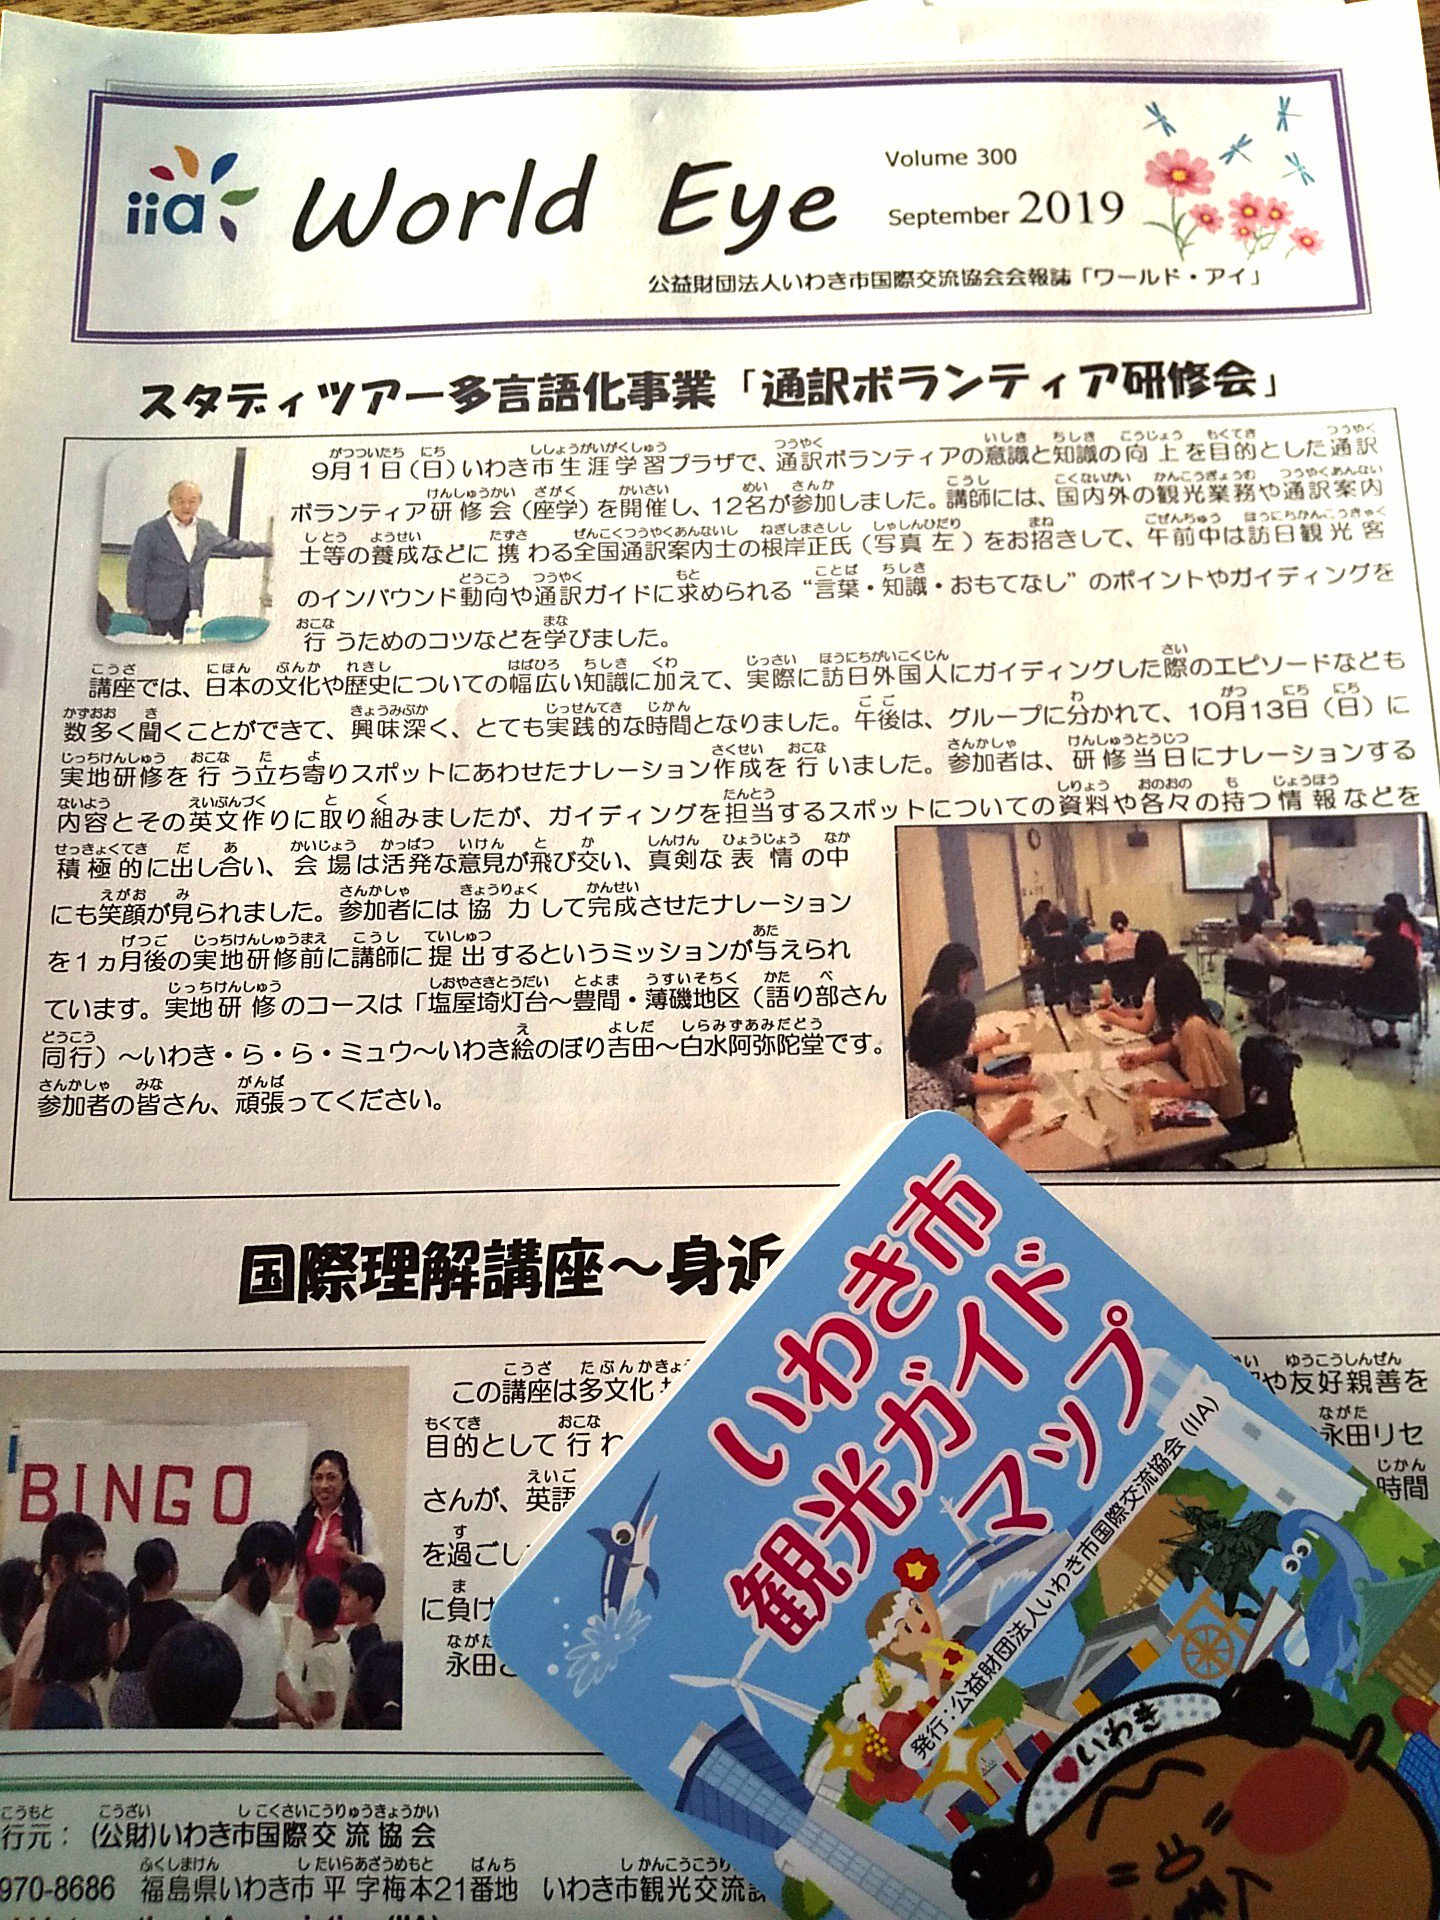 iia
World Eye
Volume 300
September 2019
公益財団法人いわき市国際交流協会会報誌「ワールド・アイ」
スタディツアー多言語化事業「通訳ボランティア研修会」
9月1日(日)いわき市生涯学習プラザで、通訳ボランティアの意識と知識の向上を目的とした通訳
ボランティア研修会(座学)を開催し、12名が参加しました。講師には、国内外の観光業務や通訳案内
士等の養成などに携わる全国通訳案内士の根岸正氏(写真左)をお招きして、午前中は訪日観光客
のインバウンド動向や通訳ガイドに求められる“言葉・知識・おもてなし”のポイントやガイディングを
行うためのコツなどを学びました。
講座では、日本の文化や歴史についての幅広い知識に加えて、実際に訪日外国人にガイディングした際のエピソードなども
数多く聞くことができて、興味深く、とても実践的な時間となりました。午後は、グループに分かれて、10月13日(日)に
実地研修を行う立ち寄りスポットにあわせたナレーション作成を行いました。参加者は、研修当日にナレーションする
内容とその英文作りに取り組みましたが、ガイディングを担当するスポットについての資料や各々の持つ情報などを
積極的に出し合い、会場は活発な意見が飛び交い、真剣な表情の中
にも笑顔が見られました。参加者には協力して完成させたナレーション
を1ヵ月後の実地研修前に講師に提出するというミッションが与えられ
ています。実地研修のコースは「塩屋埼灯台～豊間・薄磯地区(語り部さん
同行)～いわき・ら・ら・ミュウ～いわき絵のぼり吉田～白水阿弥陀堂です。
参加者の皆さん、頑張ってください。
国際理解講座～身近
この講座は多文化
や友好親善を
目的として行わ
永田リセ
さんが、英語
時間
を過ごし
に負け
永田さ
BINGO
行元：(公財)いわき市国際交流協会
970-8686 福島県いわき市平字梅本21番地 いわき市観光交流課
いわき市
観光ガイド
マップ
発行：公益財団法人いわき市国際交流協会(IIA)
いわき